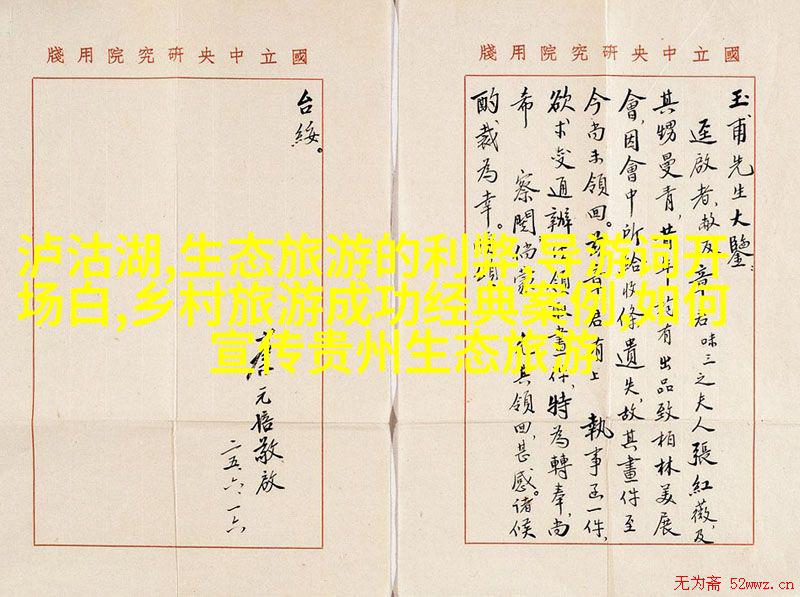 國立中央研究院用牋
玉甫先生大鑒：
逕啟者，敝友章君味三之夫人張紅薇，及
其甥曼青，均有出品致柏林美展
會，因會中所給收條遺失，故其畫件至
今尚未領回。茲章君有上 執事函一件，
欲求交通辦領畫件，特為轉奉，尚
希 察閱倘蒙 其領回，甚感諸候
酌裁為幸。順頌
國立中央研究院用牋
台綏。
蔡元培敬啟
二五、六、一六
泸沽湖,生态旅游的利弊,导游词开
场白,乡村旅游成功经典案例,如何
宣传贵州生态旅游
无为斋 52wwz.cn